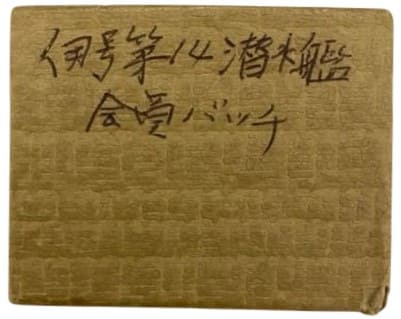 伊号第14潜水艦
会員バッチ